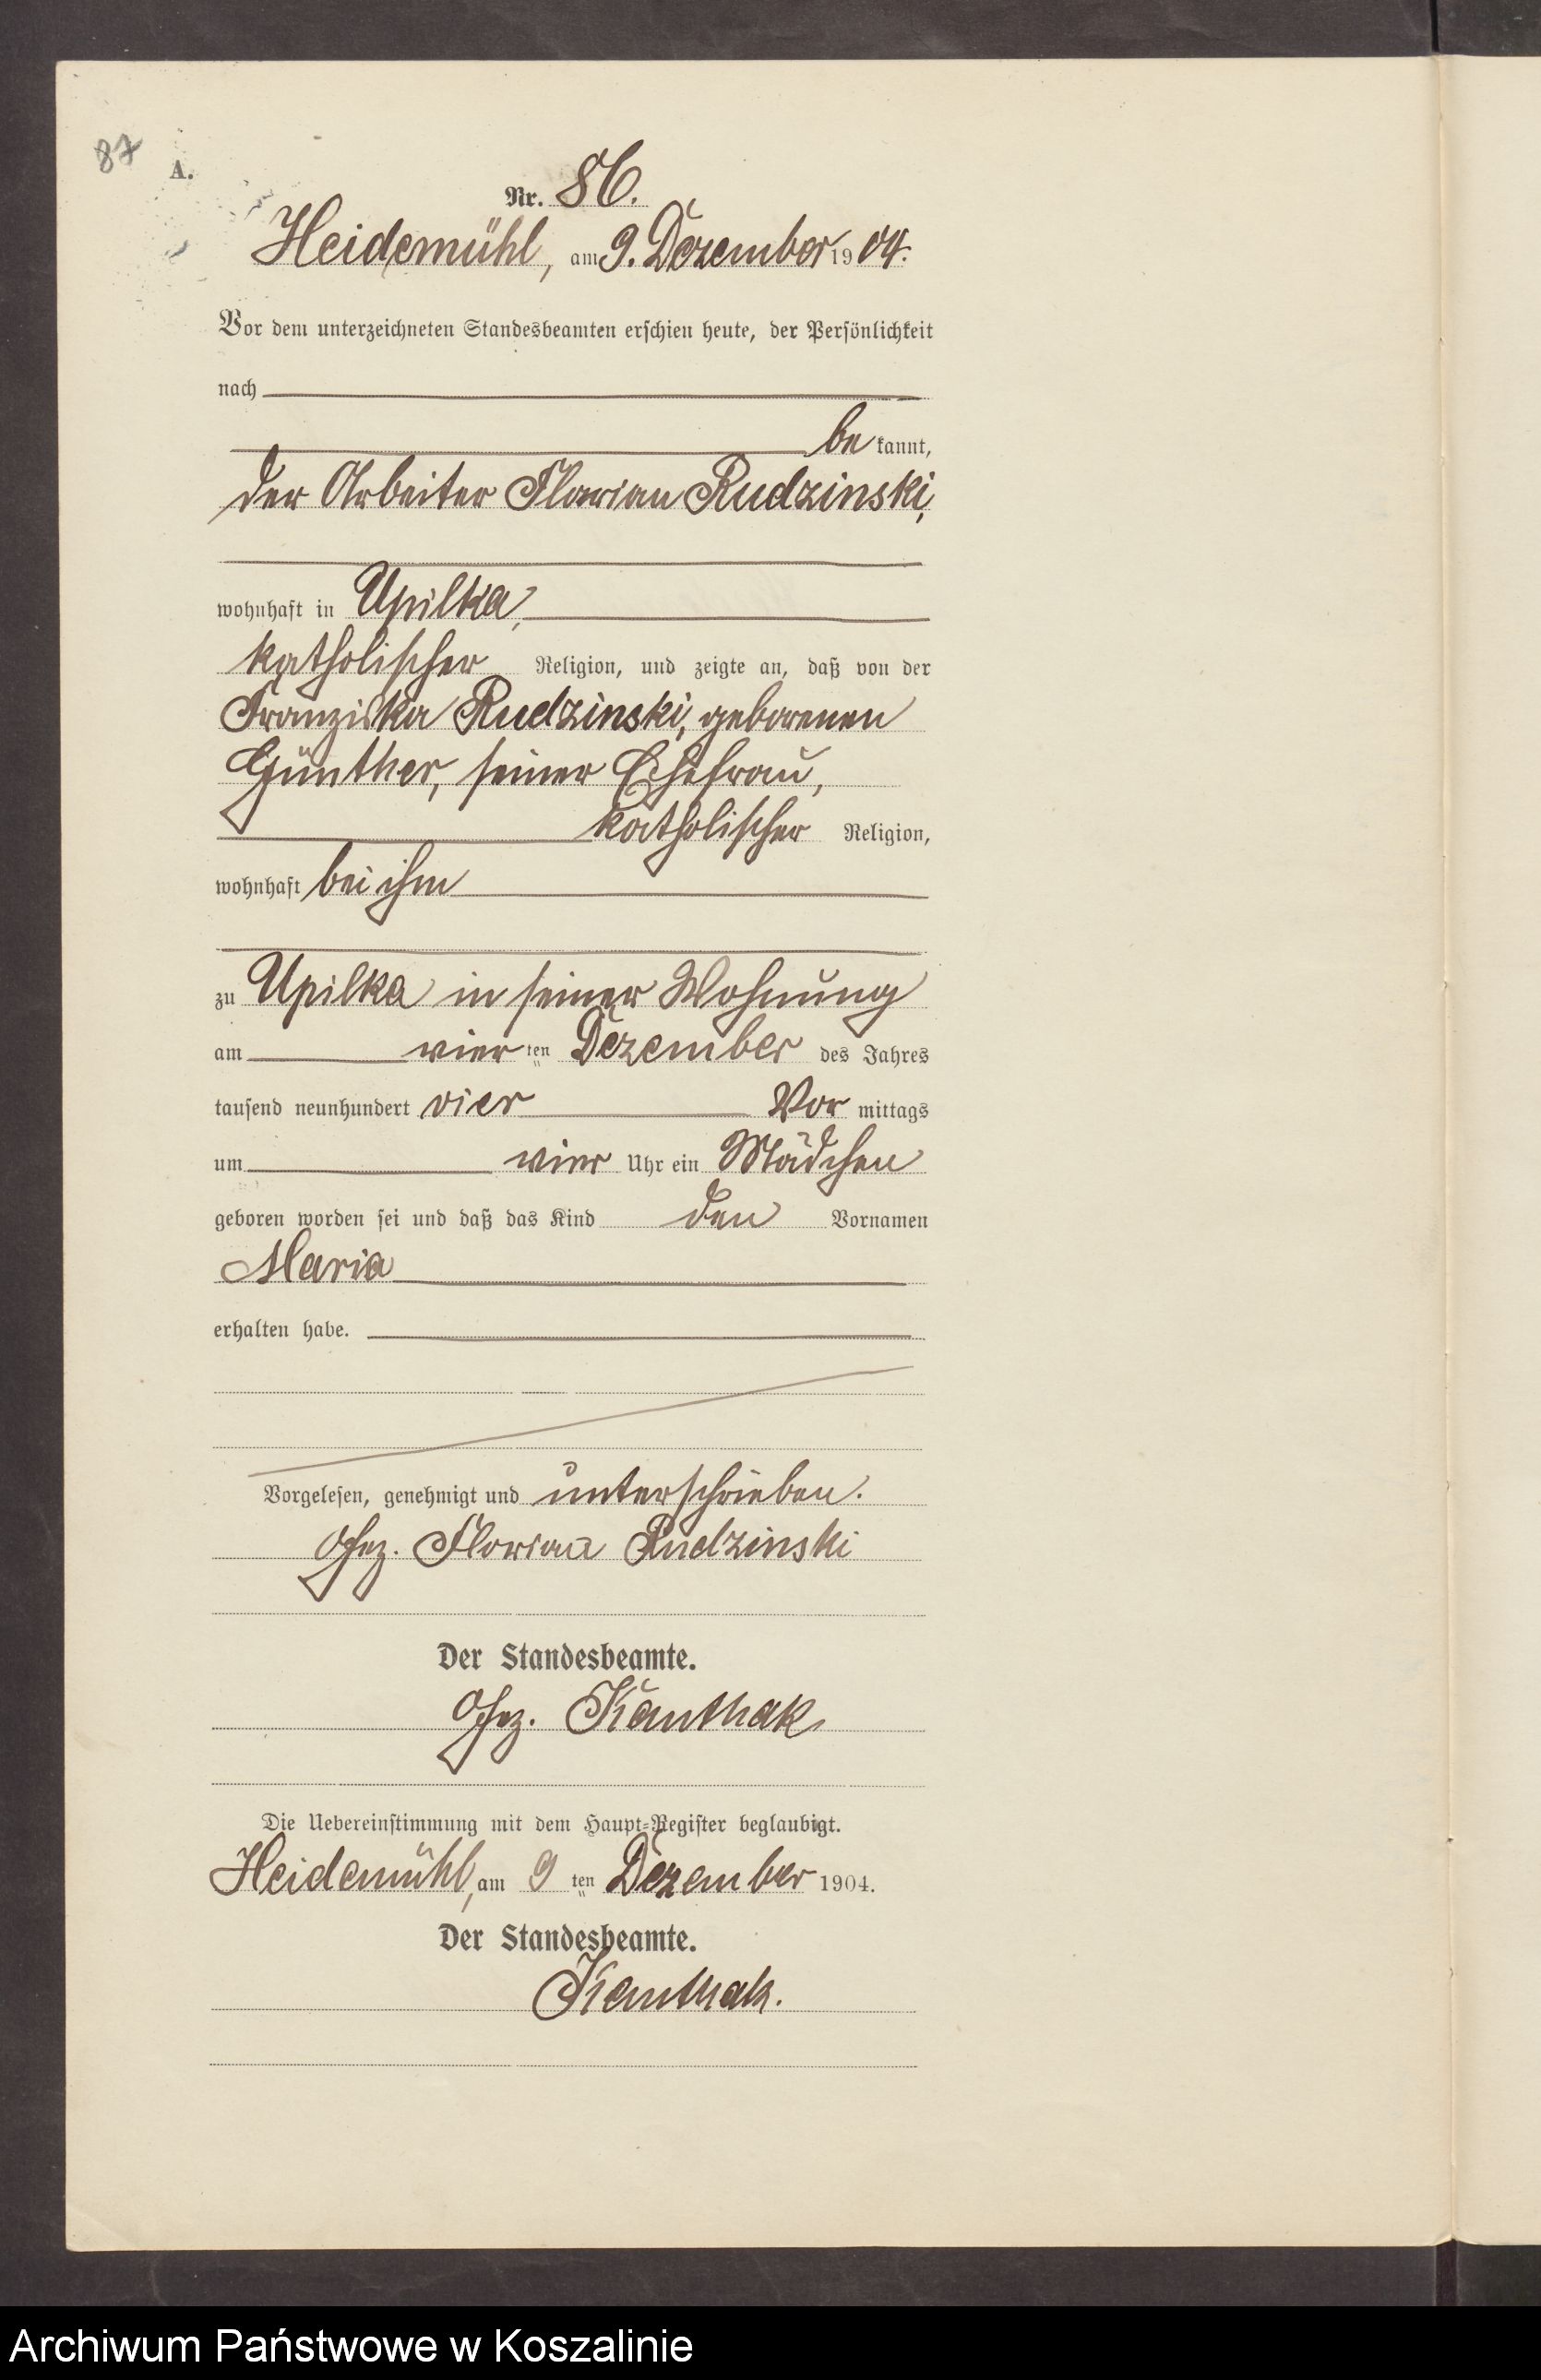 87
A.
Nr. 86.
Heidemühl, am 9. Dezember 1904.
Vor dem unterzeichneten Standesbeamten erschien heute, der Persönlichkeit
nach
be kannt,
der Arbeiter Florian Rudzinski,
wohnhaft in Upilka,
katholischer Religion, und zeigte an, daß von der
Franziska Rudzinski, geborenen
Günther, seiner Ehefrau,
katholischer Religion,
wohnhaft bei ihm
zu Upilka in seiner Wohnung
am vier ten Dezember des Jahres
tausend neunhundert vier Vor mittags
um vier Uhr ein Mädchen
geboren worden sei und daß das Kind den Vornamen
Maria
erhalten habe.
Vorgelesen, genehmigt und unterschrieben.
Gez. Florian Rudzinski
Der Standesbeamte.
Gez. Kanthak
Die Uebereinstimmung mit dem Haupt-Register beglaubigt.
Heidemühl, am 9 ten Dezember 1904.
Der Standesbeamte.
Kanthak.
Archiwum Państwowe w Koszalinie